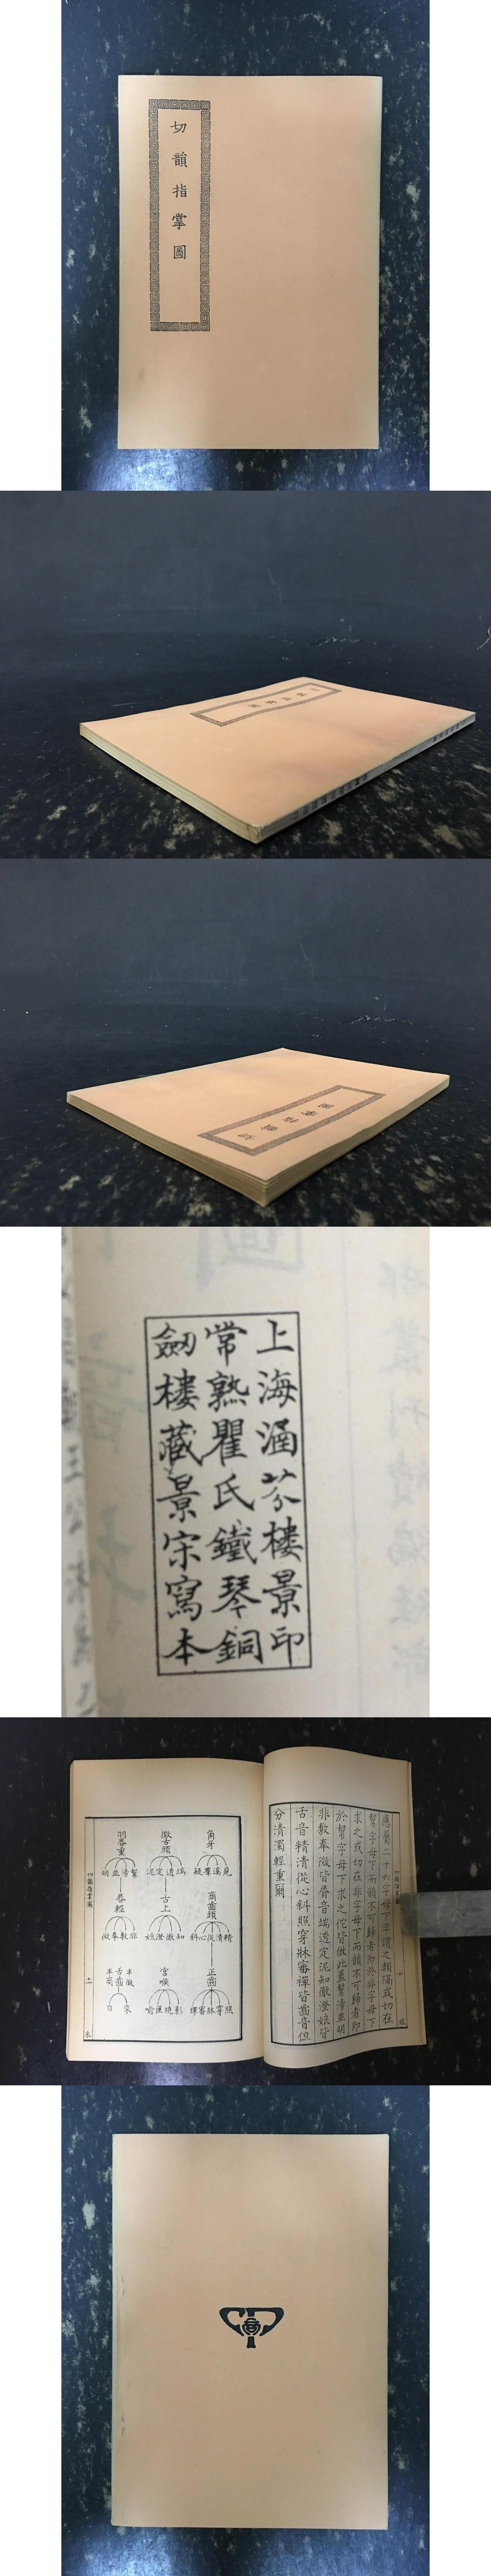 切韻指掌圖
上海涵芬樓景印
常熟瞿氏鐵琴銅
劒樓藏景宋寫本
幫字母下而韻不可歸者即於非字母下
求之或切在非字母下而韻不可歸者即
於幫字母下求之佗皆倣此蓋幫滂並明
非敷奉微皆脣音端透定泥知徹澄娘皆
舌音精清從心斜照穿牀審禪皆齒音但
分清濁輕重爾
角牙
見溪羣疑
徵舌頭
端透定泥
羽脣重
幫滂並明
商齒頭
精清從心斜
舌上
知徹澄娘
脣輕
非敷奉微
正齒
照穿牀審禪
宮喉
影曉匣喻
半徵
半商
舌齒
來
日
切韻指掌圖